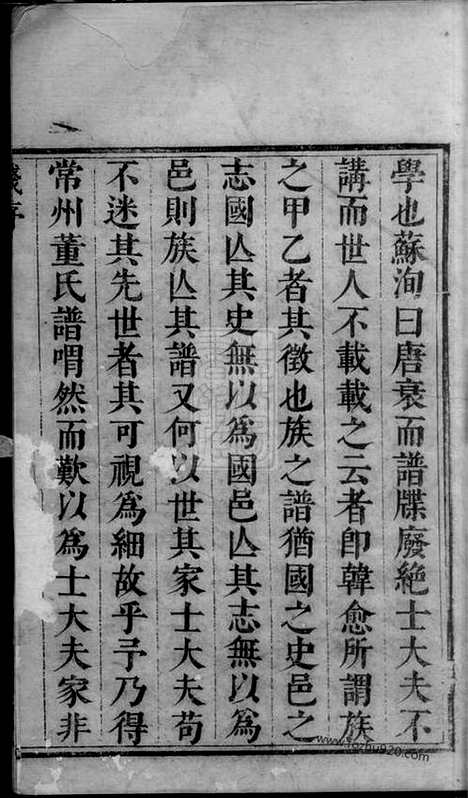 學也蘇洵曰唐衰而譜牒廢絶士大夫不
講而世人不載載之云者卽韓愈所謂族
之甲乙者其徵也族之譜猶國之史邑之
志國亾其史無以爲國邑亾其志無以爲
邑則族亾其譜又何以世其家士大夫苟
不迷其先世者其可視爲細故乎予乃得
常州董氏譜喟然而歎以爲士大夫家非